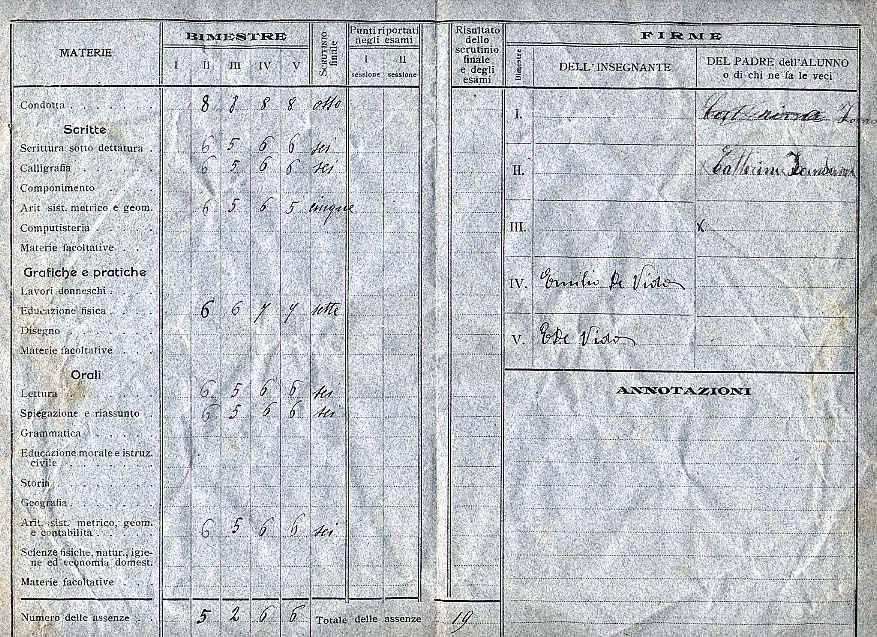 MATERIE
BIMESTRE
I II III IV V
Scrutinio finale
Punti riportati negli esami
I sessione II sessione
Risultato dello scrutinio finale e degli esami
FIRME
Bimestre
DELL'INSEGNANTE
DEL PADRE dell'ALUNNO
o di chi ne fa le veci
Condotta 8 8 8 8 otto
Scritte
Scrittura sotto dettatura 6 5 6 6 sei
Calligrafia 6 5 6 6 sei
Componimento
Arit. sist. metrico e geom. 6 5 6 5 cinque
Computisteria
Materie facoltative
Grafiche e pratiche
Lavori donneschi
Educazione fisica 6 6 7 7 sette
Disegno
Materie facoltative
Orali
Lettura 6 5 6 6 sei
Spiegazione e riassunto 6 5 6 6 sei
Grammatica
Educazione morale e istruz.
civile
Storia
Geografia
Arit. sist. metrico, geom.
e contabilità 6 5 6 6 sei
Scienze fisiche, natur., igie-
ne ed economia domest.
Materie facoltative
Numero delle assenze 5 2 6 6 Totale delle assenze 19
I.
II.
III. x
IV. Emilio De Vido
V. E De Vido
ANNOTAZIONI